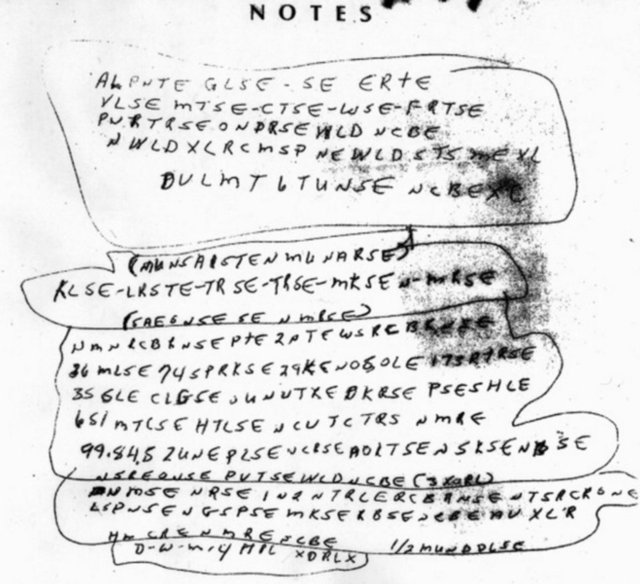 NOTES
ALPNTE GLSE - SE ERTE
VLSE MTSE-CTSE-WSE-FRTSE
PNRTRSEONDRSEWLD NCBE
NWLDXLRCMSP NEWLDSTS MEXL
DULMT6TUNSE NCBEXC
(MUNSAISTENMUNARSE)
KLSE-LRSTE-TRSE-TRSE-MKSEN-MRSE
(SAEGNSESE NMRSE)
NMNRCBRNSEPTE2PTEWSRCBRNSE
36 MLSE 74SPRKSE 29KENOSOLE 173RTRSE
35 GLE CLGSE UNUTXE DKRSE PSESHLE
651 MTCSE HTLSE NCUTCTRS NMRE
99.84.5 2UNEPLSE NCRSE AOLTSE NSKSEN SE
NSREONSE PUTSEWLD NCBE (3XORL)
NMSE NRSE IN2NTRLERCBRNSE NTSRCRONE
LSPNSENGSPSE MKSERBSE NCBE AUXLR
HM CRE NMRE NCBE 1/2 MUNDDLSE
D-W-M-4 HPL XDRLX